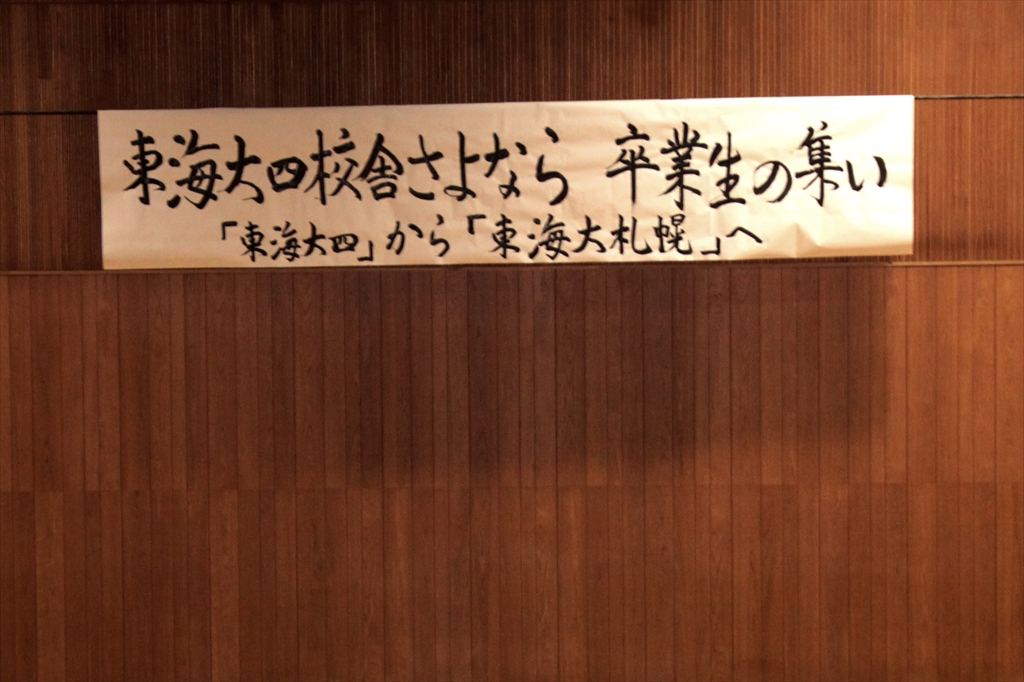 東海大四校舎さよなら 卒業生の集い
「東海大四」から「東海大札幌」へ